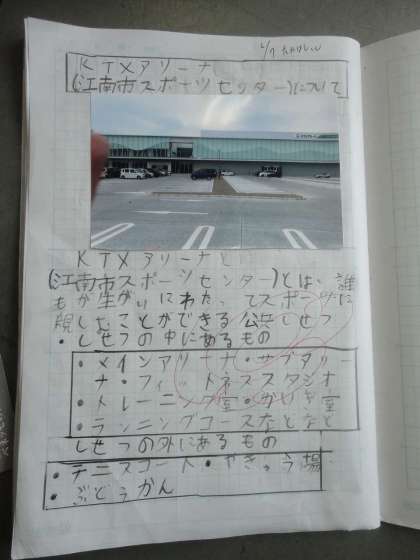 KTXアリーナ
(江南市スポーツセンター)について
KTXアリーナと
(江南市スポーツセンター)とは、誰
もが生がいにわたってスポーツに
親しむことができる公共しせつ
・しせつの中にあるもの
・メインアリーナ・サブアリー
ナ・フィットネススタジオ
・トレーニング室・かいぎ室
・ランニングコースなどなど
しせつの外にあるもの
・テニスコート・やきゅう場
・ぶどうかん